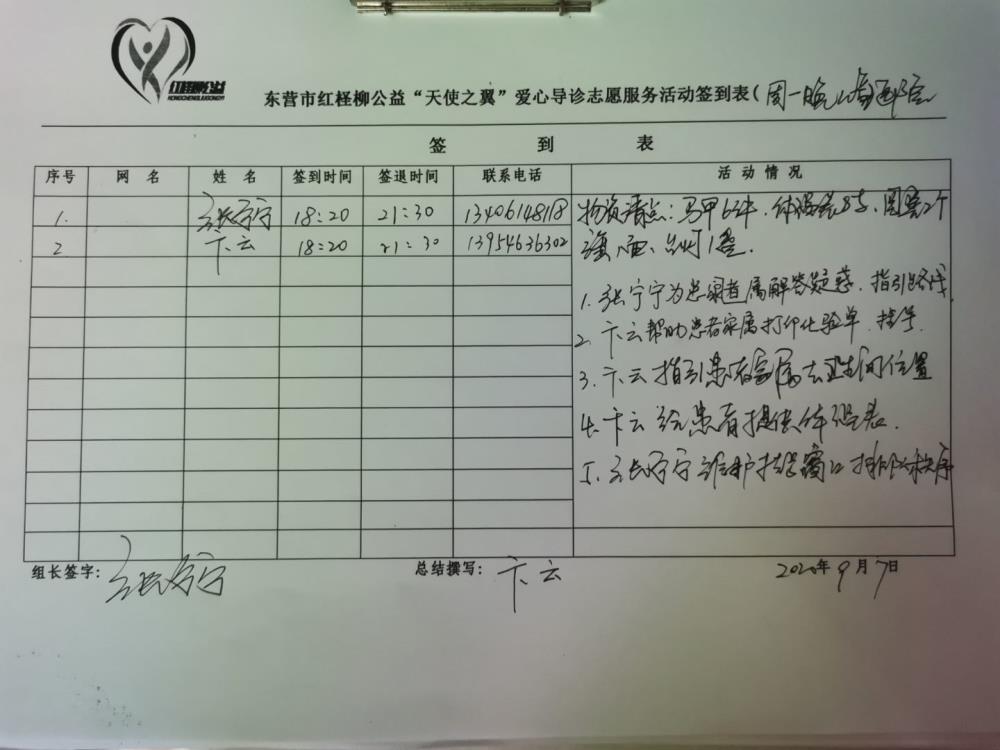 红柽柳公益
HONGCHENGLIUGONGYI
东营市红柽柳公益“天使之翼”爱心导诊志愿服务活动签到表(周一晚
签 到 表
序号 网 名 姓 名 签到时间 签退时间 联系电话 活 动 情 况
1. 张宁宁 18:20 21:30 13406148118 物资清点:马甲6件.体温表8支、
2 卞云 18:20 21:30 13954636302 1盏.
1. 张宁宁为患者家属解答疑惑.指引路线
2. 卞云帮助患者家属打印化验单.挂号.
3. 卞云指引患者家属去卫生间位置
4. 卞云给患者提供体温表.
5. 张宁宁维护挂号窗口排队秩序
组长签字: 张宁宁 总结撰写: 卞云 2020年9月7日